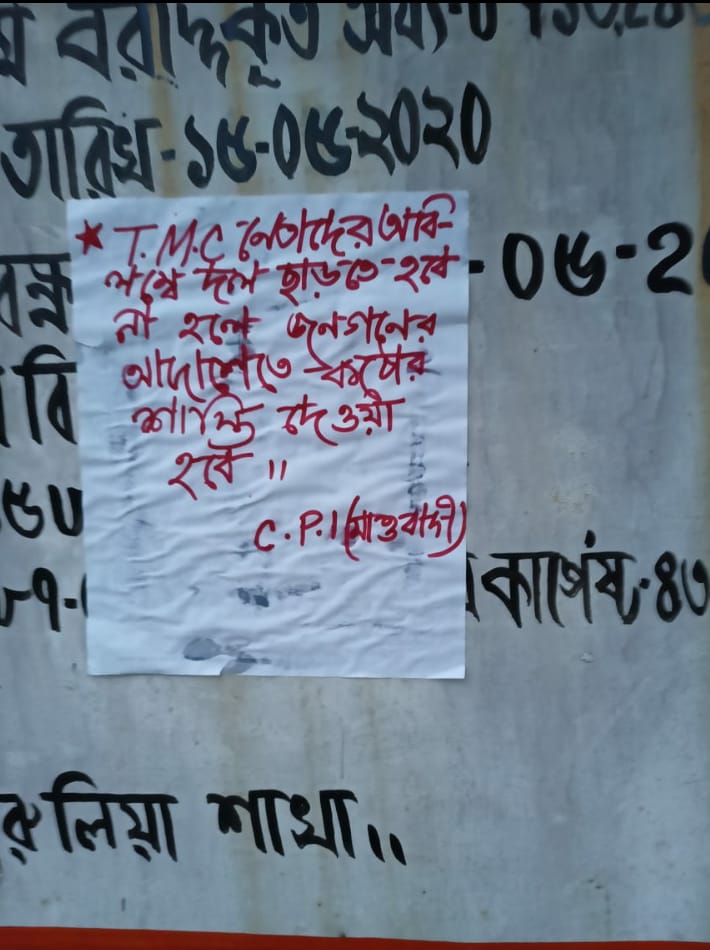 বরাদ্দকৃত অর্থ-
তারিখ-১৫-০৫-২০২০
-০৫-২
★ T.M.C নেতাদের অবি-
লম্বে দল ছাড়তে হবে
না হলে জনগনের
আদালতে কঠোর
শাস্তি দেওয়া
হবে ॥
C.P.I (মাওবাদী)
লিয়া শাখা॥